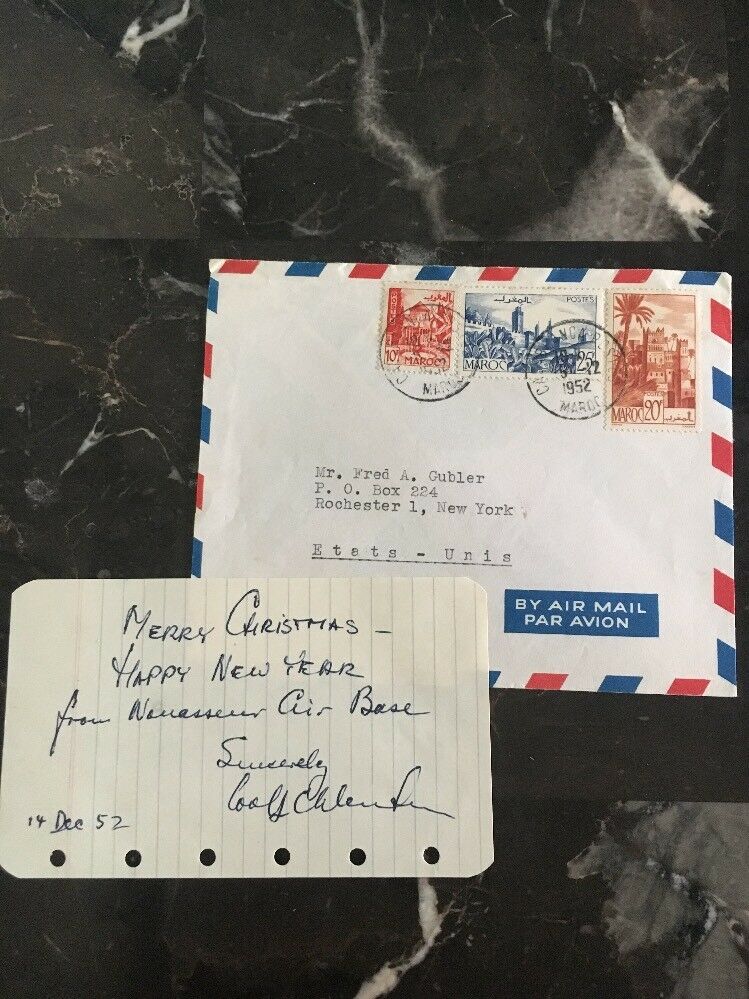 المغرب
POSTES
10F
MAROC
المغرب
POSTES
MAROC
25F
MAROC 20F
POSTES
المغرب
1952
MAROC
MAROC
Mr. Fred A. Gubler
P. O. Box 224
Rochester 1, New York
Etats - Unis
BY AIR MAIL
PAR AVION
MERRY CHRISTMAS -
HAPPY NEW YEAR
from Nouasseur Air Base
Sincerely
14 Dec 52